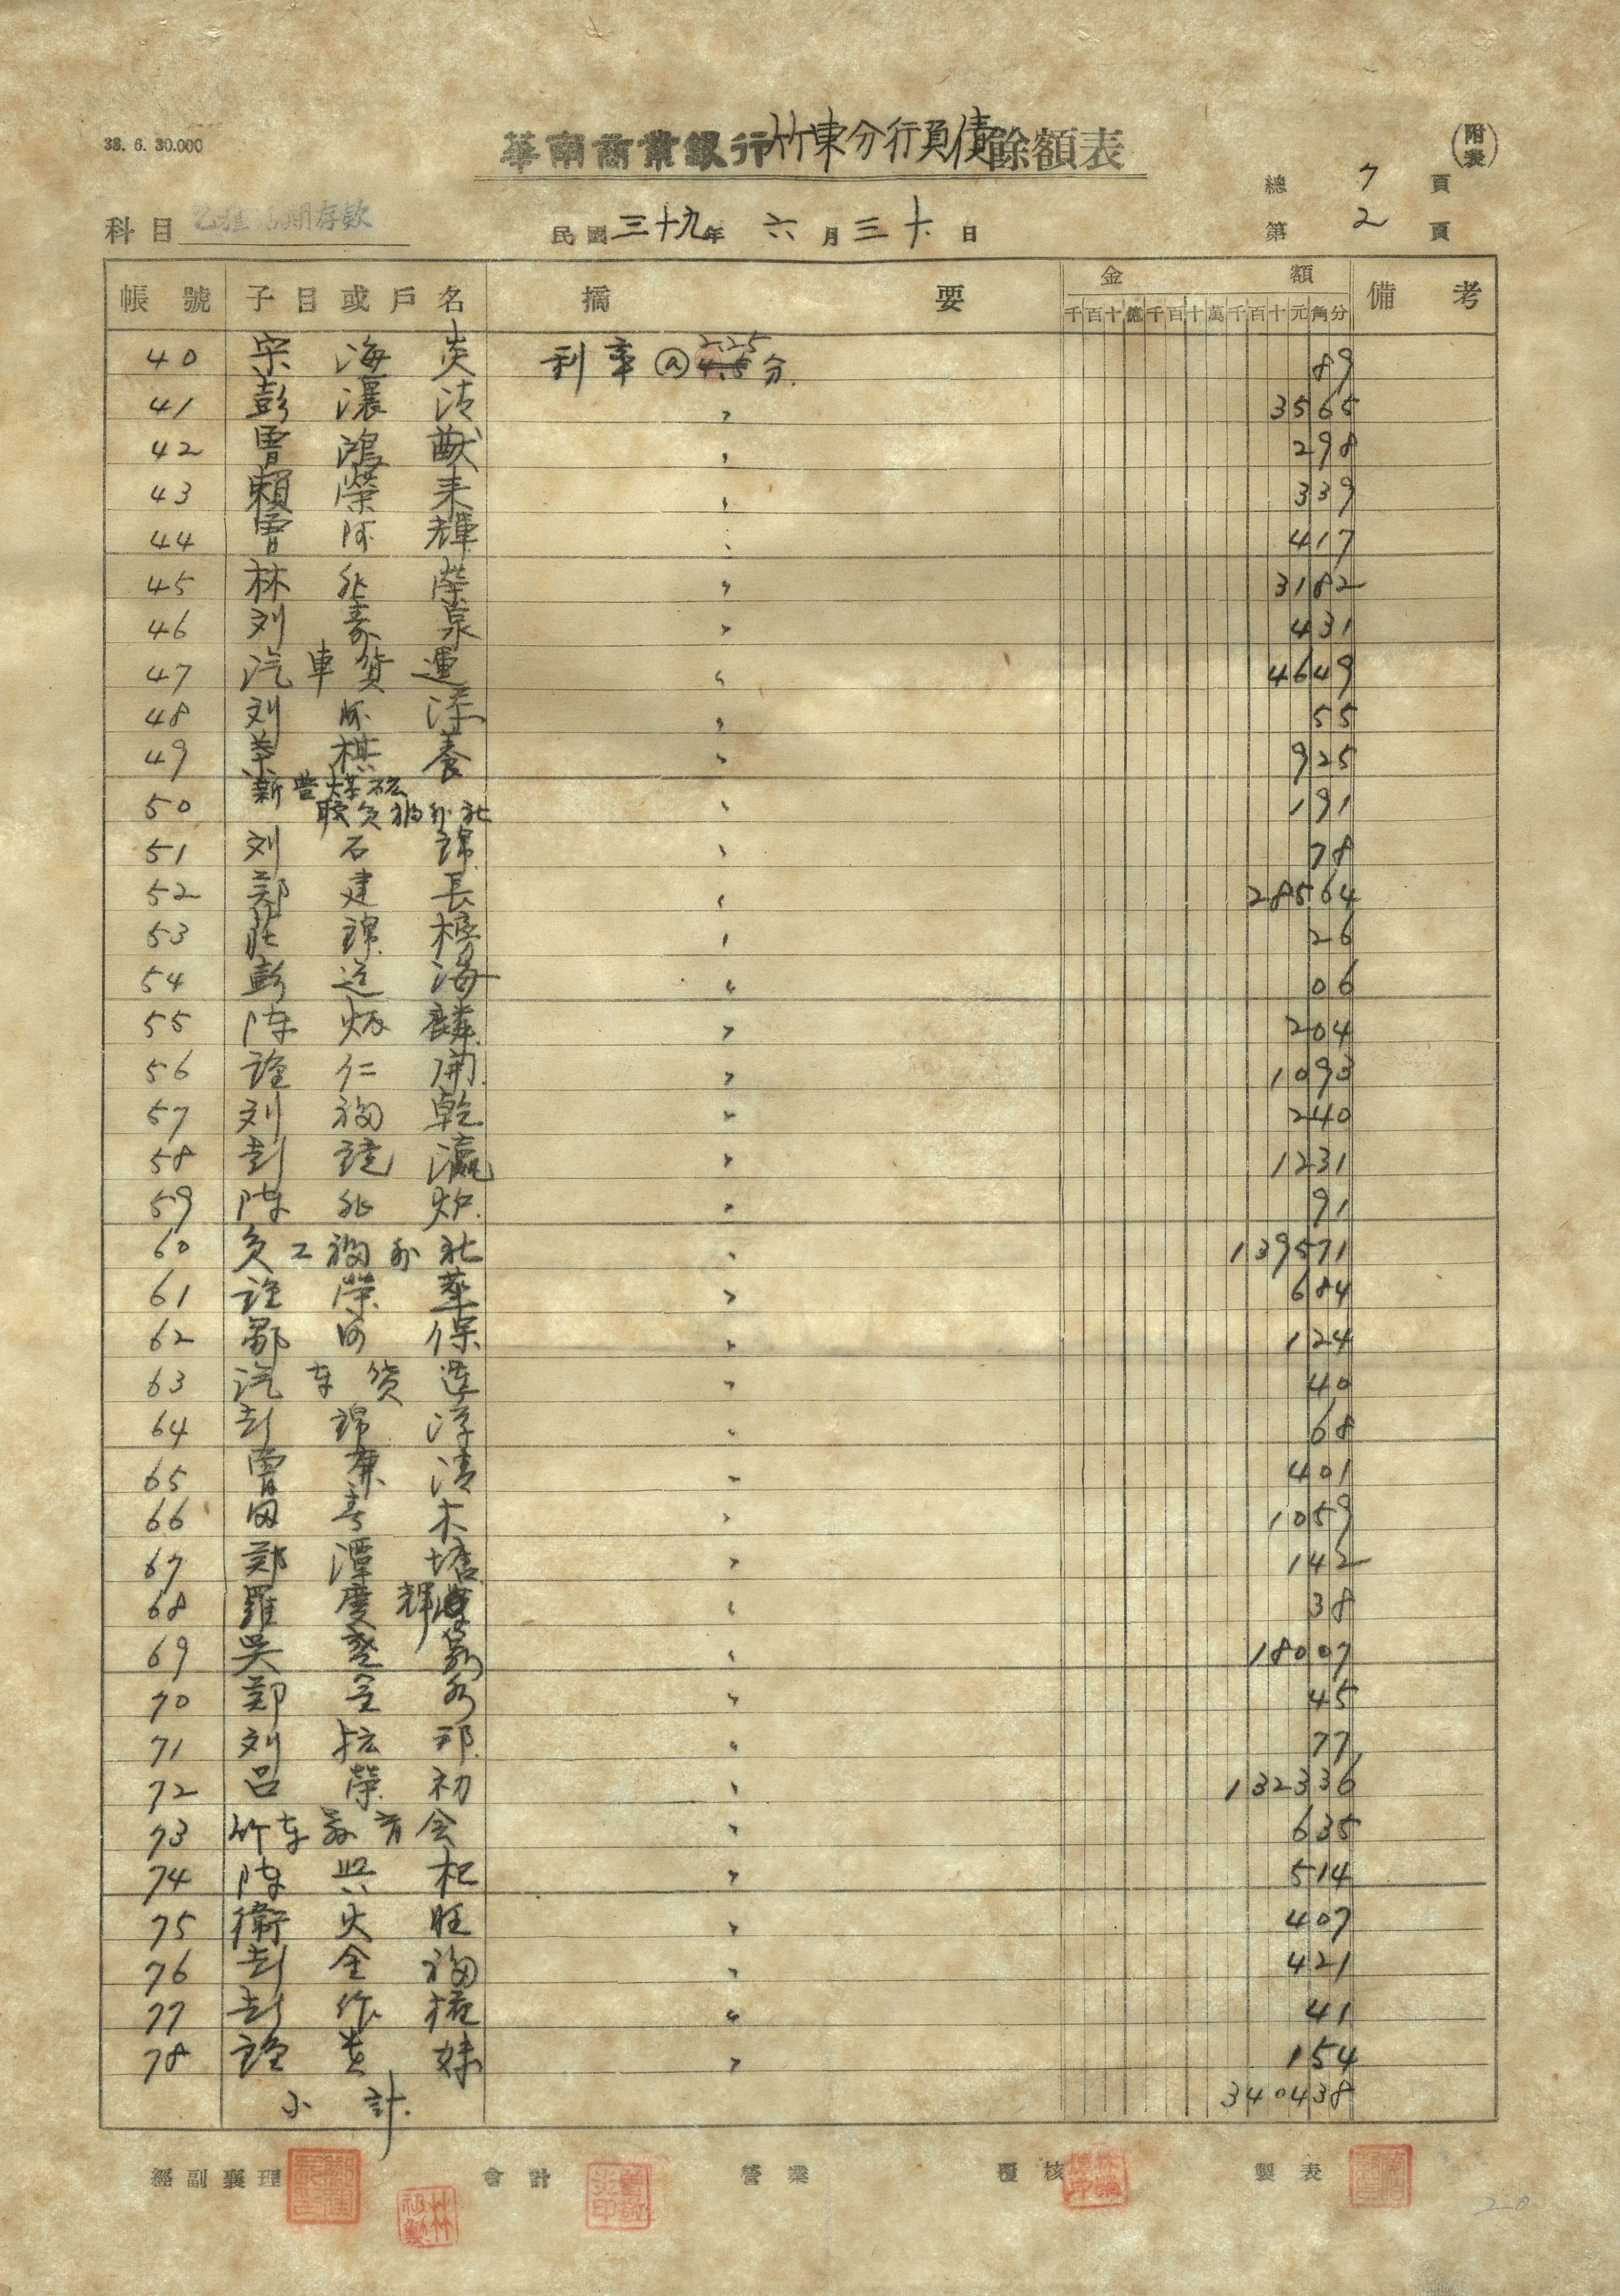 38. 6. 30.000
華南商業銀行竹東分行負債餘額表
(附表)
總 7 頁
科目 乙種活期存款 民國三十九年 六月三十日 第 2 頁
帳號 子目或戶名 摘要 金額 備考
千百十億千百十萬千百十元角分
40 宋海炎 利率@ 2.25 4.5分. 89
41 彭瀼清 〃 3565
42 曹鴻猷 〃 298
43 賴榮来 〃 339
44 曹阿輝 〃 417
45 林兆榮 〃 3182
46 刘泉 〃 431
47 汽車貨運 〃 4649
48 刘阿添 〃 55
49 葉棋養 〃 925
50 新豊煤砿 〃 191
51 刘石錦 〃 78
52 鄭建長 〃 28564
53 莊錦 〃 26
54 彭送海 〃 06
55 陳炳麟 〃 204
56 仁開 〃 1093
57 刘福乾 〃 240
58 彭瀛 〃 1231
59 陳兆炉 〃 91
60 員工福利社 〃 139571
61 榮華 〃 684
62 鄒阿保 〃 124
63 汽车貨运 〃 40
64 彭錦淳 〃 68
65 曹康清 〃 401
66 田春木 〃 1059
67 鄭潭塘 〃 142
68 羅慶輝 〃 38
69 吳 〃 18007
70 鄭金 〃 45
71 刘邦 〃 77
72 呂榮初 〃 132336
73 竹东教育会 〃 635
74 陳興杞 〃 514
75 衛火旺 〃 407
76 彭金福 〃 421
77 彭作 〃 41
78 貴妹 〃 154
小計. 340438
經副襄理 會計 營業 覆核 製表
20